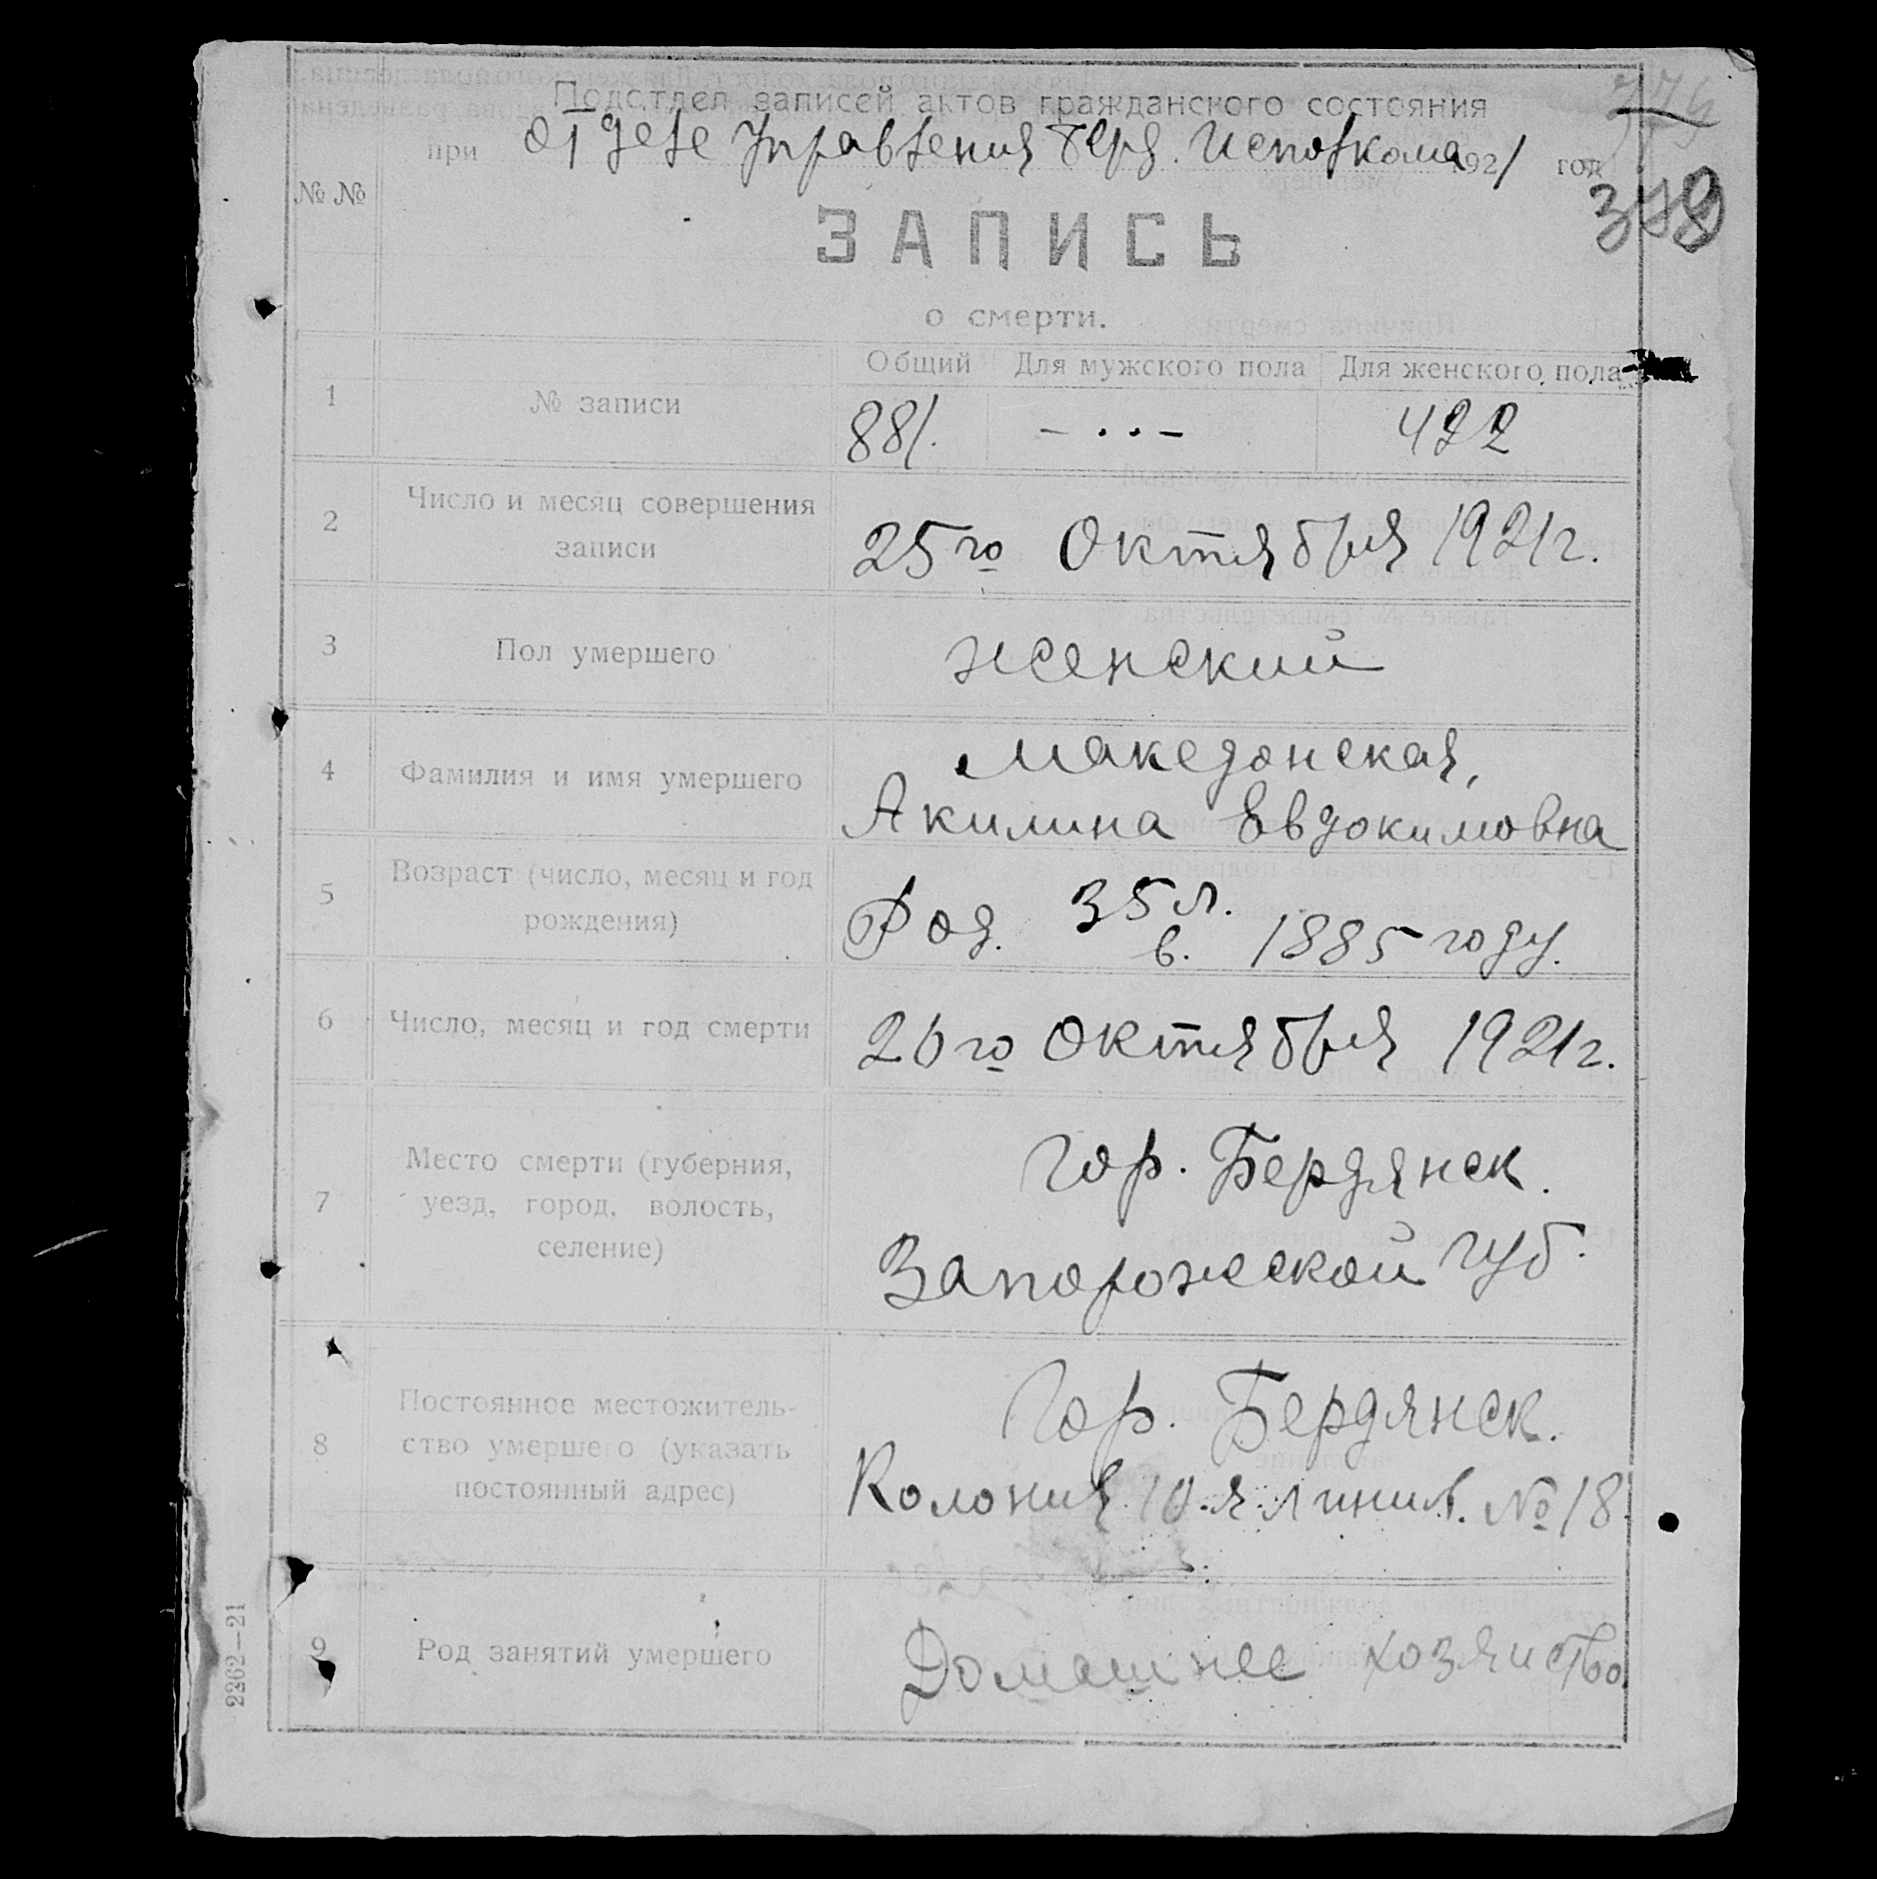 Подотдел записей актов гражданского состояния
при Отделе Управления Берд. Исполкома 1921 год
379
№ №
ЗАПИСЬ
о смерти.
Общий Для мужского пола Для женского пола
1 № записи 881. – . . – 422
2 Число и месяц совершения
записи
25го Октября 1921г.
3 Пол умершего женский
4 Фамилия и имя умершего
Македонская,
Акилина Евдокимовна
5 Возраст (число, месяц и год
рождения)
35 л.
Род. в. 1885 году.
6 Число, месяц и год смерти 20го Октября 1921г.
7 Место смерти (губерния,
уезд, город, волость,
селение)
Гор. Бердянск.
Запорожской губ.
8 Постоянное местожитель-
ство умершего (указать
постоянный адрес)
Гор. Бердянск.
Колония 10-я линия. № 18.
9 Род занятий умершего Домашнее хозяйство
2362—21